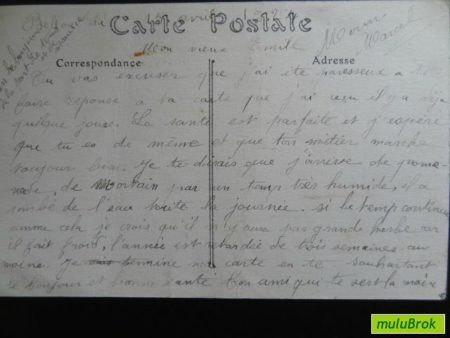 Carte Postale
Correspondance
Adresse
Mon vieux Emile
Tu vas excuser que j'ai été paresseux a te
faire reponse a ta carte que j'ai reçu il y a déja
quelque jours. La santé est parfaite et j'espère
que tu es de même et que ton métier marche
toujour bien. Je te dirais que j'arrive de prome
nade, de Mortain par un temp très humide, il a
tombé de l'eau toute la journée. si le temp continue
comme cela je crois qu'il n'y aura pas grande herbe car
il fait froid, l'année est retardée de trois semaines au
moins. Je termine ma carte en te souhaitant
le bonjour et bonne santé ton ami qui te sert la main
Marcel
muluBrok